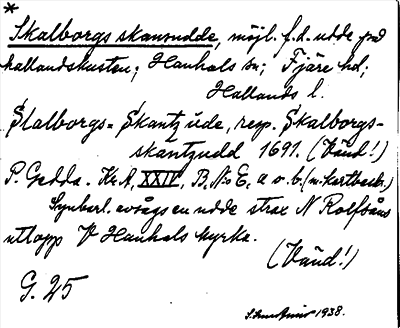 *
Skalborgs skansudde, möjl. f.d. udde på
hallandskusten; Hanhals sn; Fjäre hd;
Hallands l.
Skalborgs=Skantz ude, resp. Skalborgs-
skantzudd 1691. (Vänd!)
P. Gedda. KrA, XXIV, B. No E, a o. b. (m. kartbeskr.)
Synbarl. avsågs en udde strax N Rolfsåns
utlopp V Hanhals kyrka.
(Vänd!)
G. 25
1938.